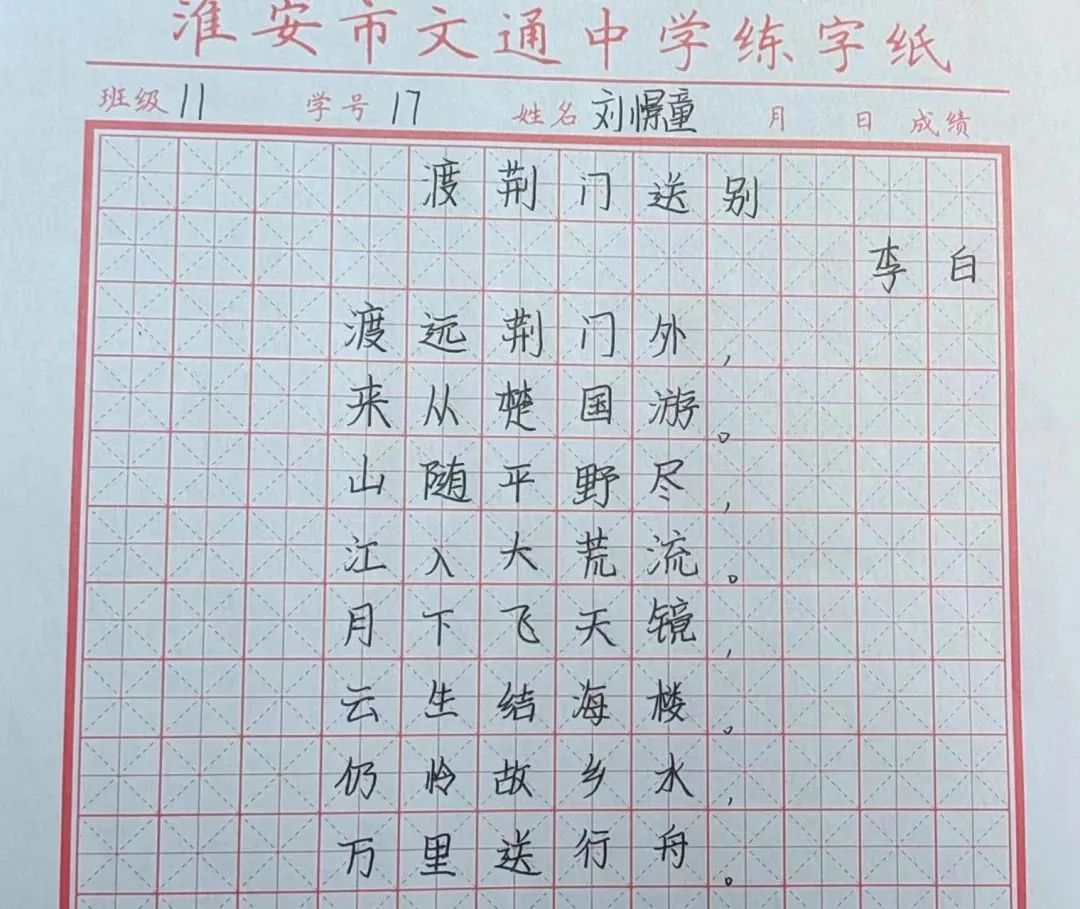 淮安市文通中学练字纸
班级 11 学号 17 姓名 刘憬童 月 日 成绩
渡荆门送别
李白
渡远荆门外,
来从楚国游。
山随平野尽,
江入大荒流。
月下飞天镜,
云生结海楼。
仍怜故乡水,
万里送行舟。